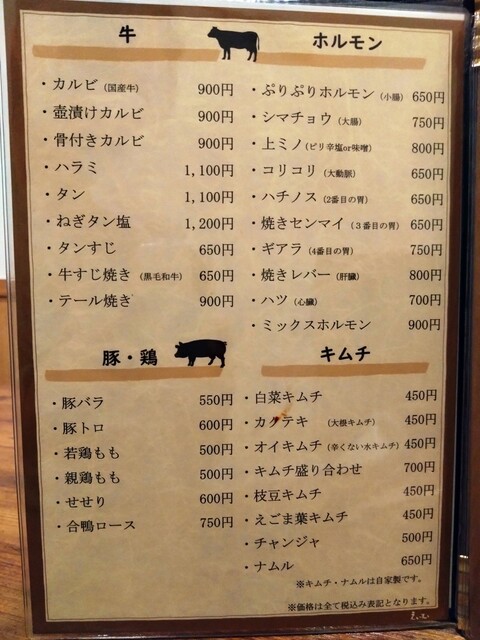 牛
・カルビ（国産牛） 900円
・壺漬けカルビ 900円
・骨付きカルビ 900円
・ハラミ 1,100円
・タン 1,100円
・ねぎタン塩 1,200円
・タンすじ 650円
・牛すじ焼き（黒毛和牛） 650円
・テール焼き 900円
ホルモン
・ぷりぷりホルモン（小腸） 650円
・シマチョウ（大腸） 750円
・上ミノ（ピリ辛塩or味噌） 800円
・コリコリ（大動脈） 650円
・ハチノス（2番目の胃） 650円
・焼きセンマイ（３番目の胃） 650円
・ギアラ（4番目の胃） 750円
・焼きレバー（肝臓） 800円
・ハツ（心臓） 700円
・ミックスホルモン 900円
豚・鶏
・豚バラ 550円
・豚トロ 600円
・若鶏もも 500円
・親鶏もも 500円
・せせり 600円
・合鴨ロース 750円
キムチ
・白菜キムチ 450円
・カクテキ（大根キムチ） 450円
・オイキムチ（辛くない水キムチ） 450円
・キムチ盛り合わせ 700円
・枝豆キムチ 450円
・えごま葉キムチ 450円
・チャンジャ 500円
・ナムル 650円
※キムチ・ナムルは自家製です。
※価格は全て税込み表記となります。